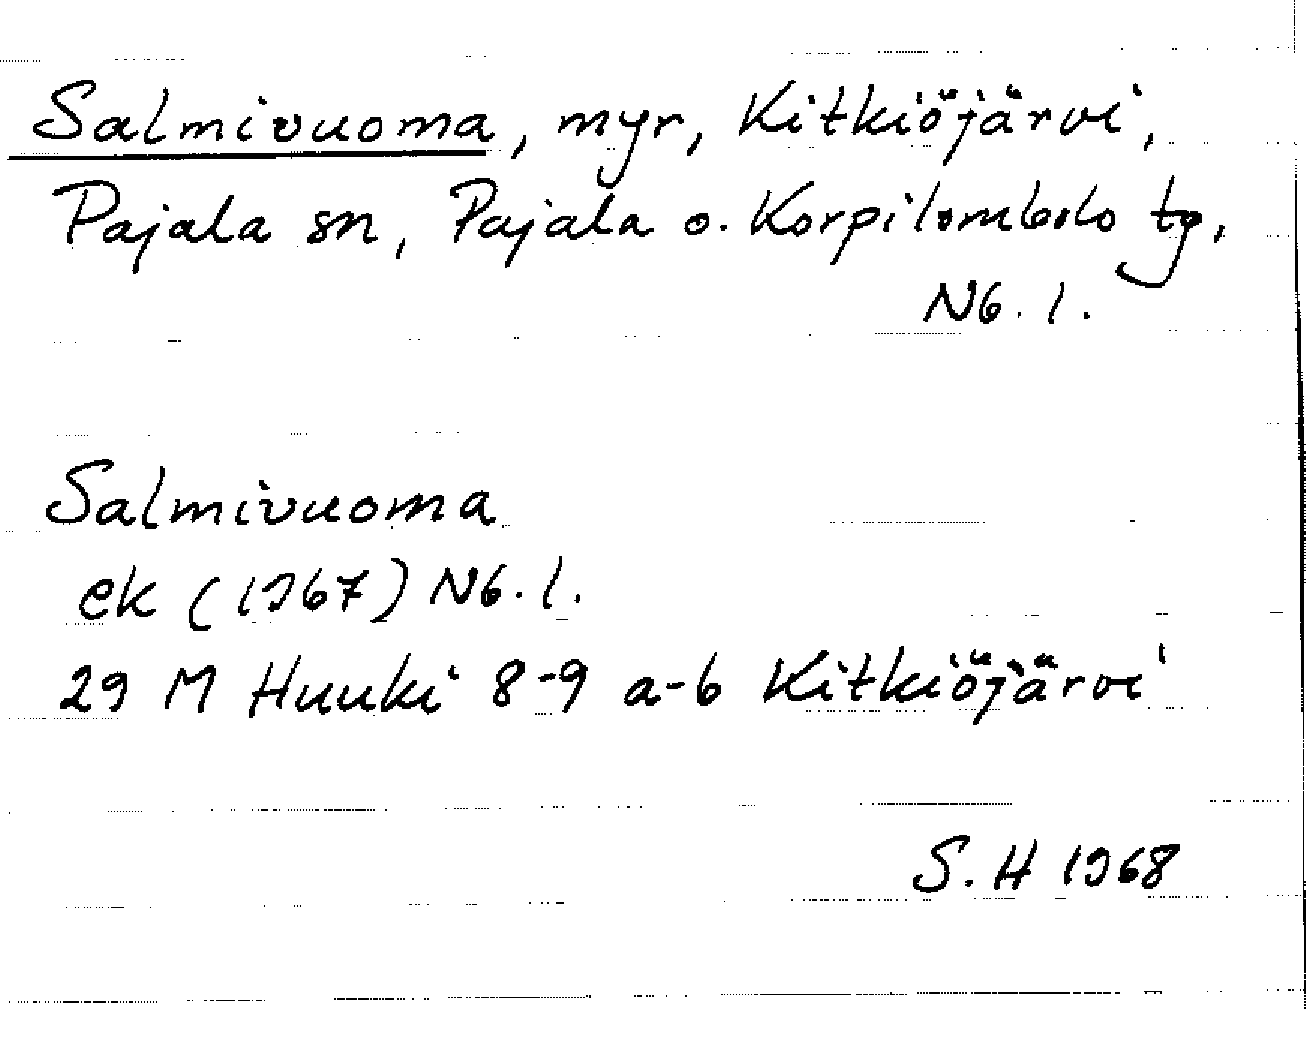 Salmivuoma, myr, Kitkiöjärvi,
Pajala sn, Pajala o. Korpilombolo tg,
Nb. l.
Salmivuoma
ek (1967) Nb. l.
29 M Huuki 8-9 a-b Kitkiöjärvi
S. H 1968